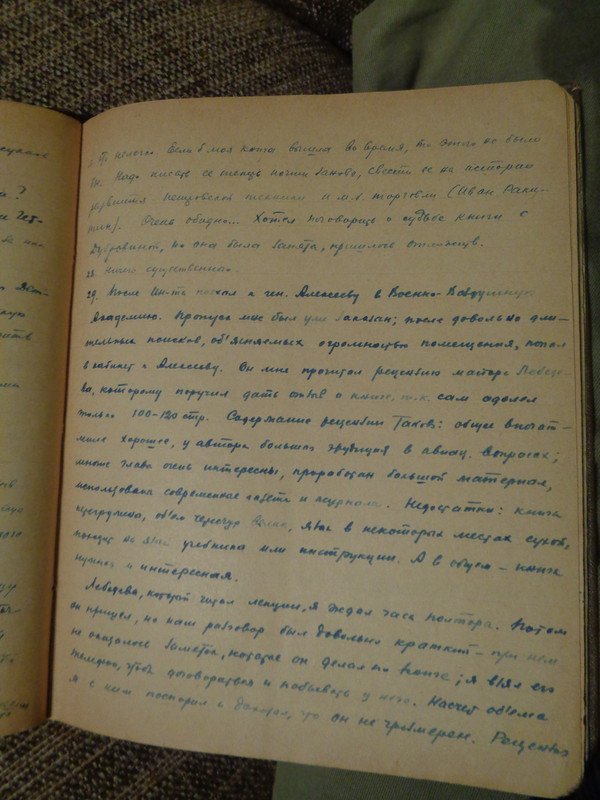 нелегко. Если б моя книга вышла во время, то этого не было
бы. Надо писать ее теперь почти заново, свести ее на историю
развития
техники и м.б. торговли (Иван Ракитин). Очень обидно... Хотел поговорить о судьбе книги с
Дубровиной, но она была занята, пришлось отложить.
28. ничего существенного.
29. После Ин-та поехал к ген. Алексееву в Военно-Воздушную
Академию. Пропуск мне был уже заказан; после довольно дли-
тельных поисков, об'ясняемых огромностью помещения, попал
в кабинет к Алексееву. Он мне прочитал рецензию майора Лебеде-
ва, которому поручил дать отзыв о книге, т.к. сам одолел
только 100-120 стр. Содержание рецензии таково: общее впечат-
ление хорошее, у автора большая эрудиция в авиац. вопросах;
многие главы очень интересны, проработан большой материал,
использованы современные газеты и журналы. Недостатки: книга
перегружена, об'ем чересчур велик, язык в некоторых местах сухой,
походит на язык учебника или инструкции. А в общем - книга
нужная и интересная.
Лебедева, который читал лекции, я ждал часа полтора. Потом
он пришел, но наш разговор был довольно краткий - при нем
не оказалось заметок, которые он делал по книге; я взял его
телефон, чтоб договориться и побывать у него. Насчет об'ема
я с ним поспорил и доказал, что он не чрезмерен. Рецензию